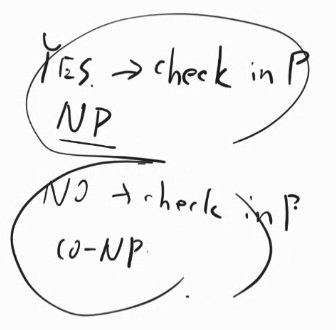 YES. → check in P
NP
NO → check in P
co-NP.